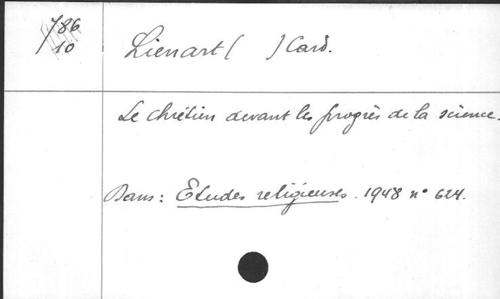 786
10
Lienart ( ) Card.
Le chrétien devant les progrès de la science.
Dans: Etudes religieuses. 1948 n° 624.